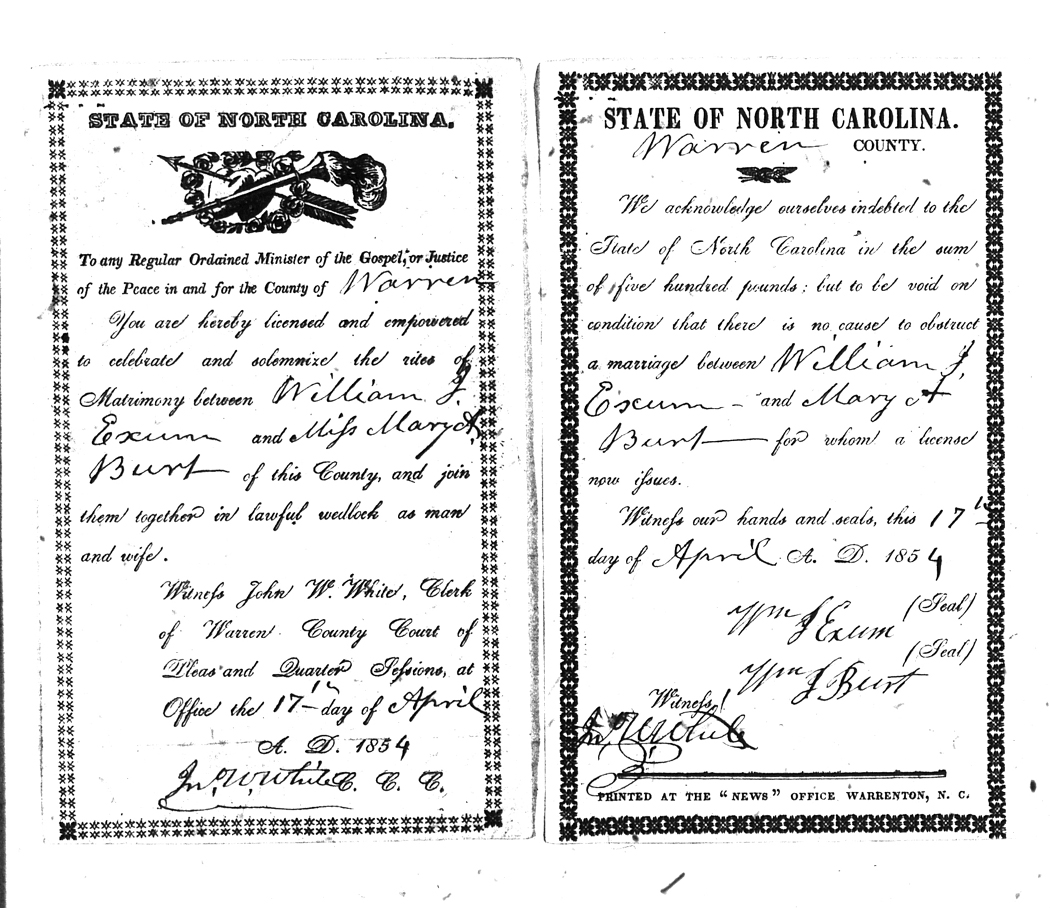 STATE OF NORTH CAROLINA.
To any Regular Ordained Minister of the Gospel, or Justice
of the Peace in and for the County of Warren
You are hereby licensed and empowered
to celebrate and solemnize the rites of
Matrimony between William J.
Exum and Miss Mary A.
Burt of this County, and join
them together in lawful wedlock as man
and wife.
Witness John W. White, Clerk
of Warren County Court of
Pleas and Quarter Sessions, at
Office the 17th day of April
A. D. 1854
Jn. W. White C. C. C.
STATE OF NORTH CAROLINA.
Warren COUNTY.
We acknowledge ourselves indebted to the
State of North Carolina in the sum
of five hundred pounds; but to be void on
condition that there is no cause to obstruct
a marriage between William J.
Exum - and Mary A
Burt for whom a license
now issues.
Witness our hands and seals, this 17th
day of April A. D. 1854
Wm J Exum (Seal)
Wm J Burt (Seal)
Witness
Jn. W White
PRINTED AT THE "NEWS" OFFICE WARRENTON, N. C.